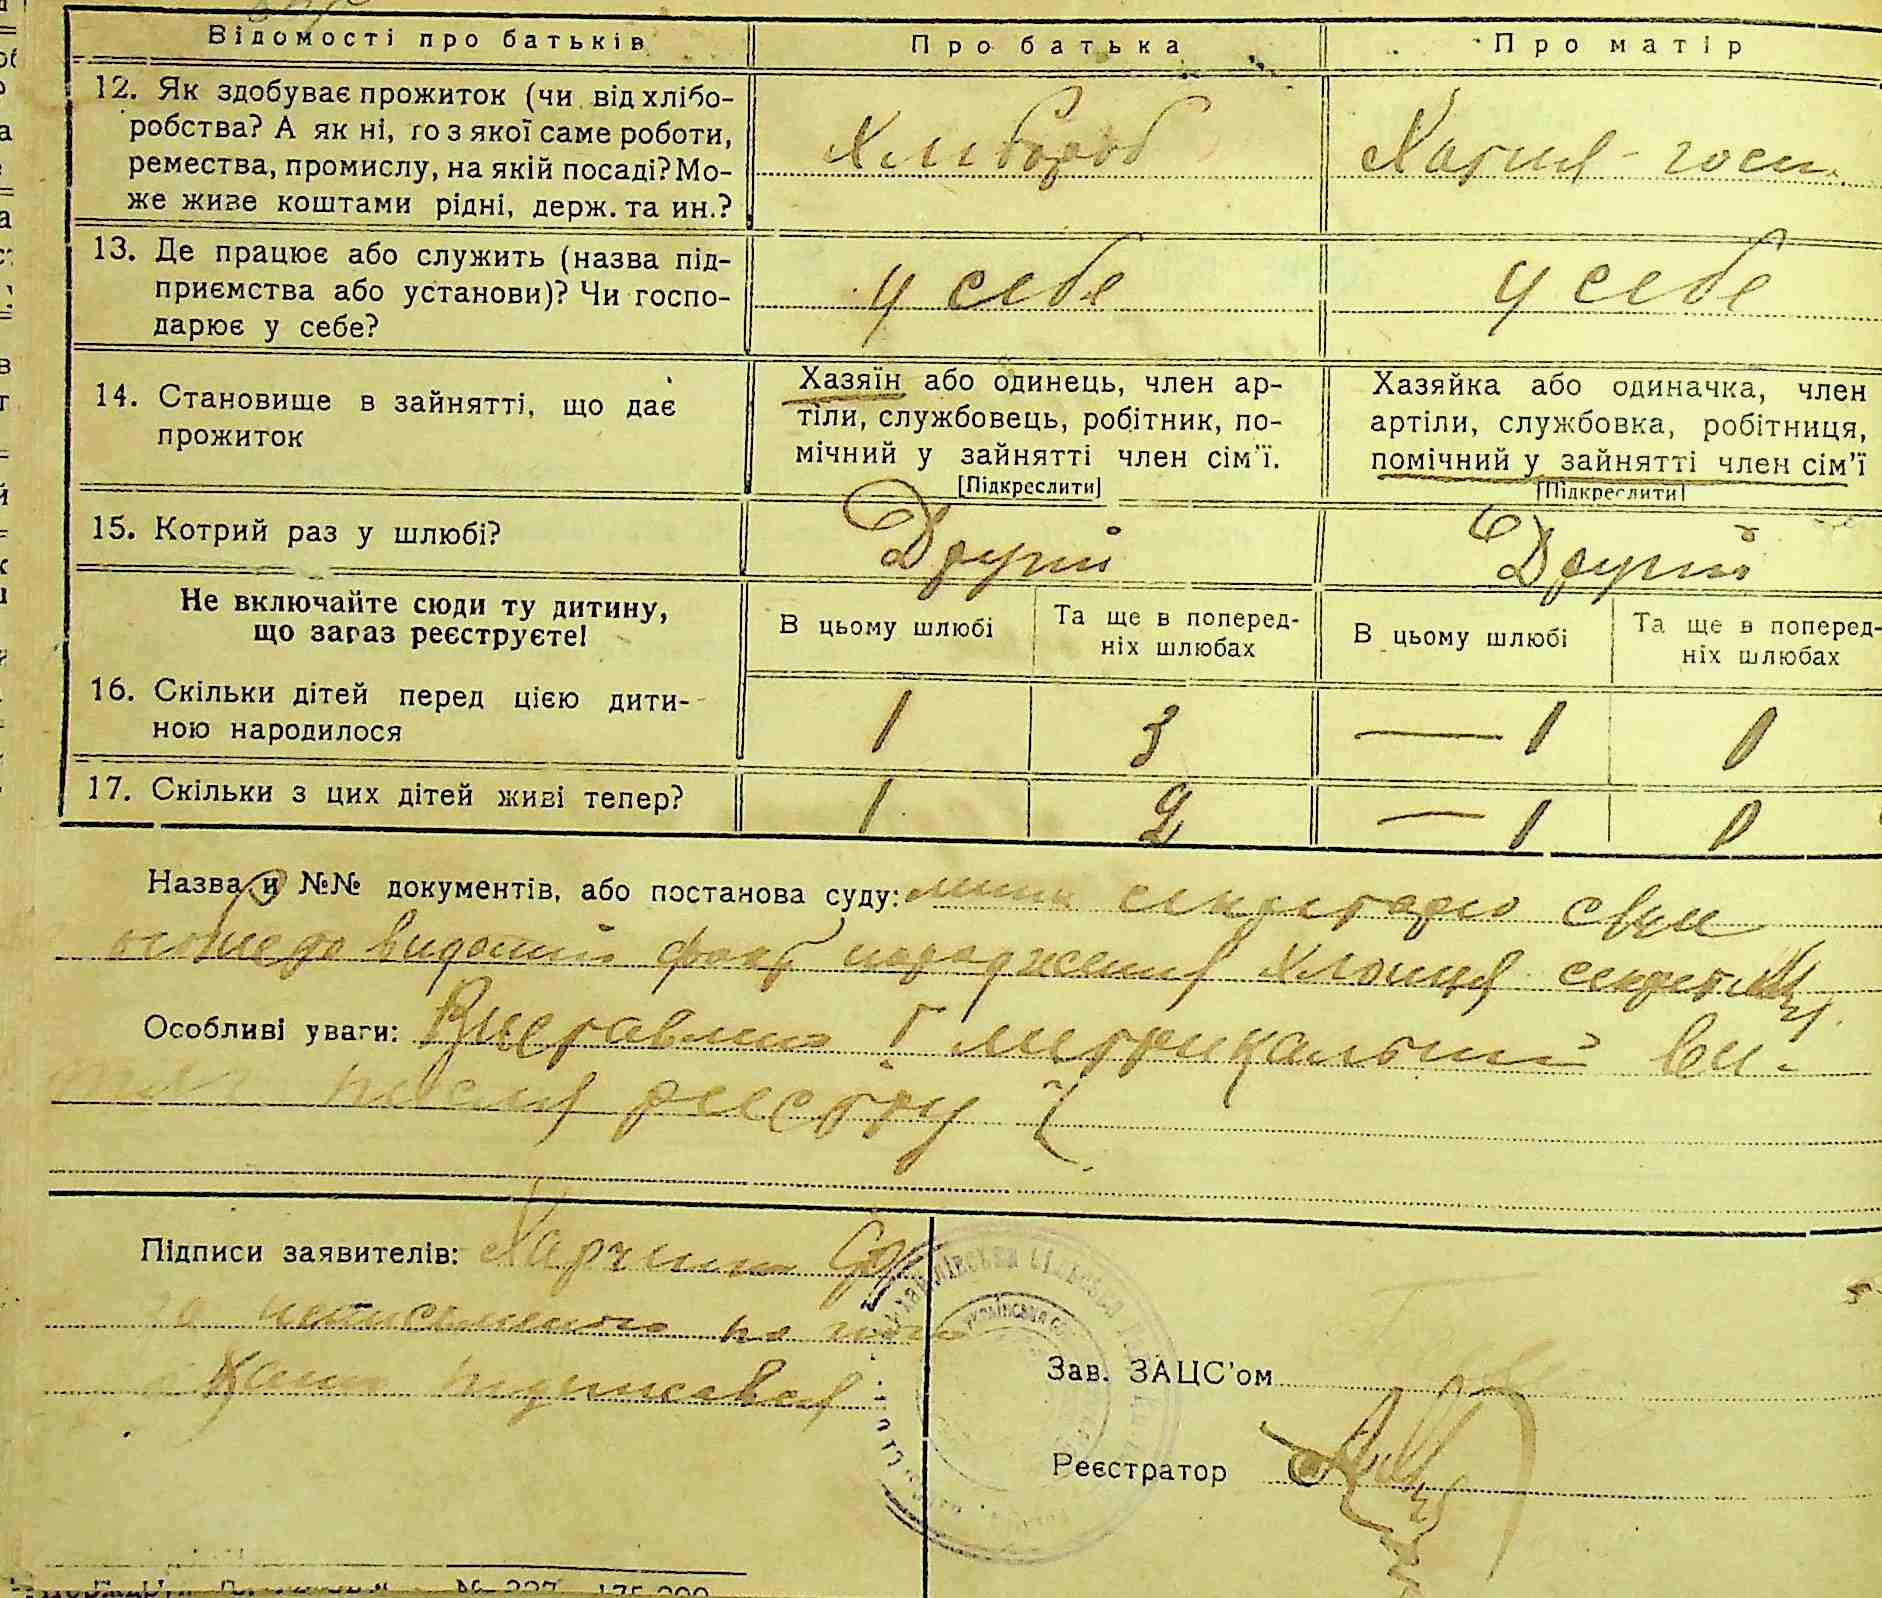 Відомості про батьків
Про батька
Про матір
12. Як здобуває прожиток (чи від хлібо-
робства? А як ні, то з якої саме роботи,
ремества, промислу, на якій посаді? Мо-
же живе коштами рідні, держ. та ин.?
Хлібороб
Хатня - госп.
13. Де працює або служить (назва під-
приємства або установи)? Чи госпо-
дарює у себе?
у себе
у себе
14. Становище в зайнятті, що дає
прожиток
Хазяїн або одинець, член ар-
тіли, службовець, робітник, по-
мічний у зайнятті член сім'ї.
[Підкреслити]
Хазяйка або одиначка, член
артіли, службовка, робітниця,
помічний у зайнятті член сім'ї
[Підкреслити]
15. Котрий раз у шлюбі?
Другий
Другий
Не включайте сюди ту дитину,
що зараз реєструєте!
В цьому шлюбі
Та ще в поперед-
ніх шлюбах
В цьому шлюбі
Та ще в поперед-
ніх шлюбах
16. Скільки дітей перед цією дити-
ною народилося
1
3
— 1
0
17. Скільки з цих дітей живі тепер?
1
2
— 1
0
Назва и №№ документів, або постанова суду:
факт народження хлопця
Особливі уваги: Виставлено метрикальний ви-
після реєстру
Підписи заявителів: Харчин
підписався
Зав. ЗАЦС'ом
Реєстратор